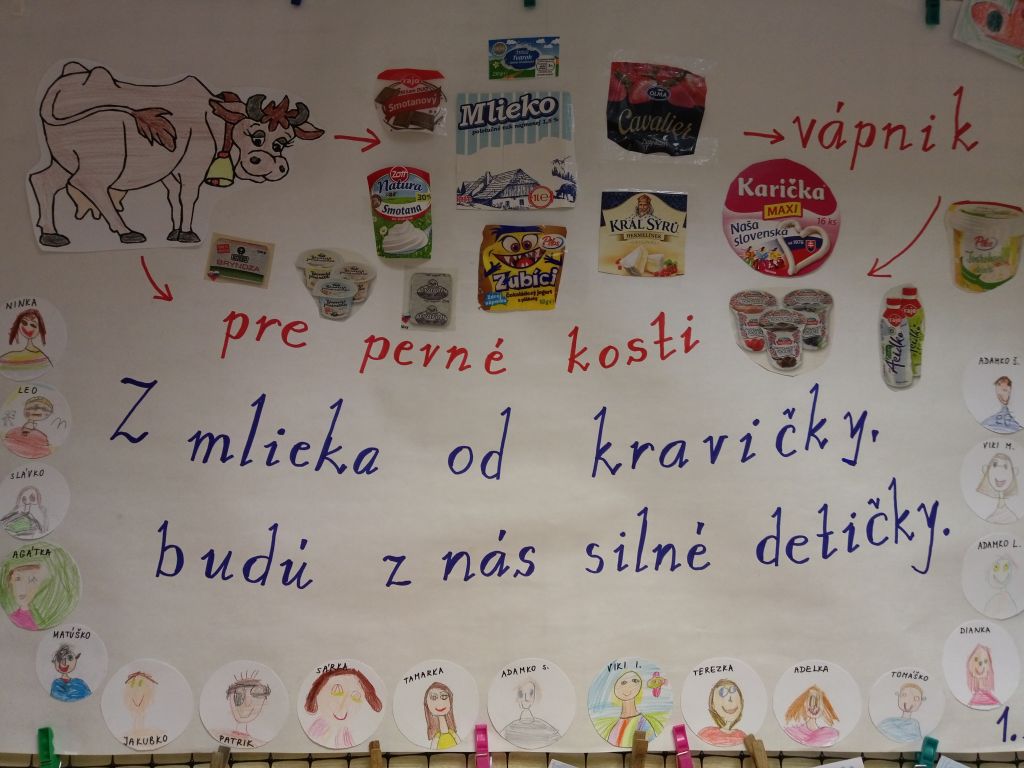 Tvaroh
rajo
Smotanový
Mlieko
OLMA
Cavalier
vápnik
Zott
Natura
Smotana
30%
1L e
KRÁĽ SYROV
HERMELÍNEK
Karička
MAXI
16 ks
Naša
slovenská
BRYNDZA
Zubíci
Acidko
pre pevné kosti
Z mlieka od kravičky,
budú z nás silné detičky.
NINKA
LEO
SLÁVKO
AGÁTKA
MATÚŠKO
JAKUBKO
PATRIK
SÁRKA
TAMARKA
ADAMKO S.
VIKI I.
TEREZKA
ADELKA
TOMÁŠKO
DIANKA
ADAMKO L.
VIKI M.
ADAMKO Š.
1.